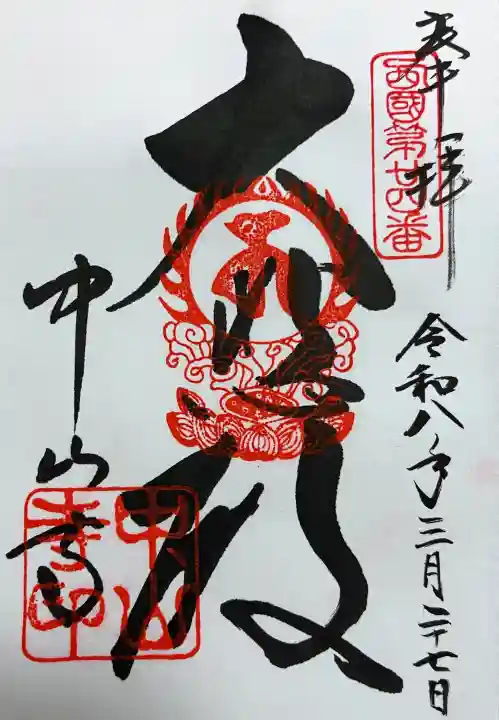 奉拝
西國第廿四番
令和八年三月二十七日
大悲殿
中山寺
中山寺印